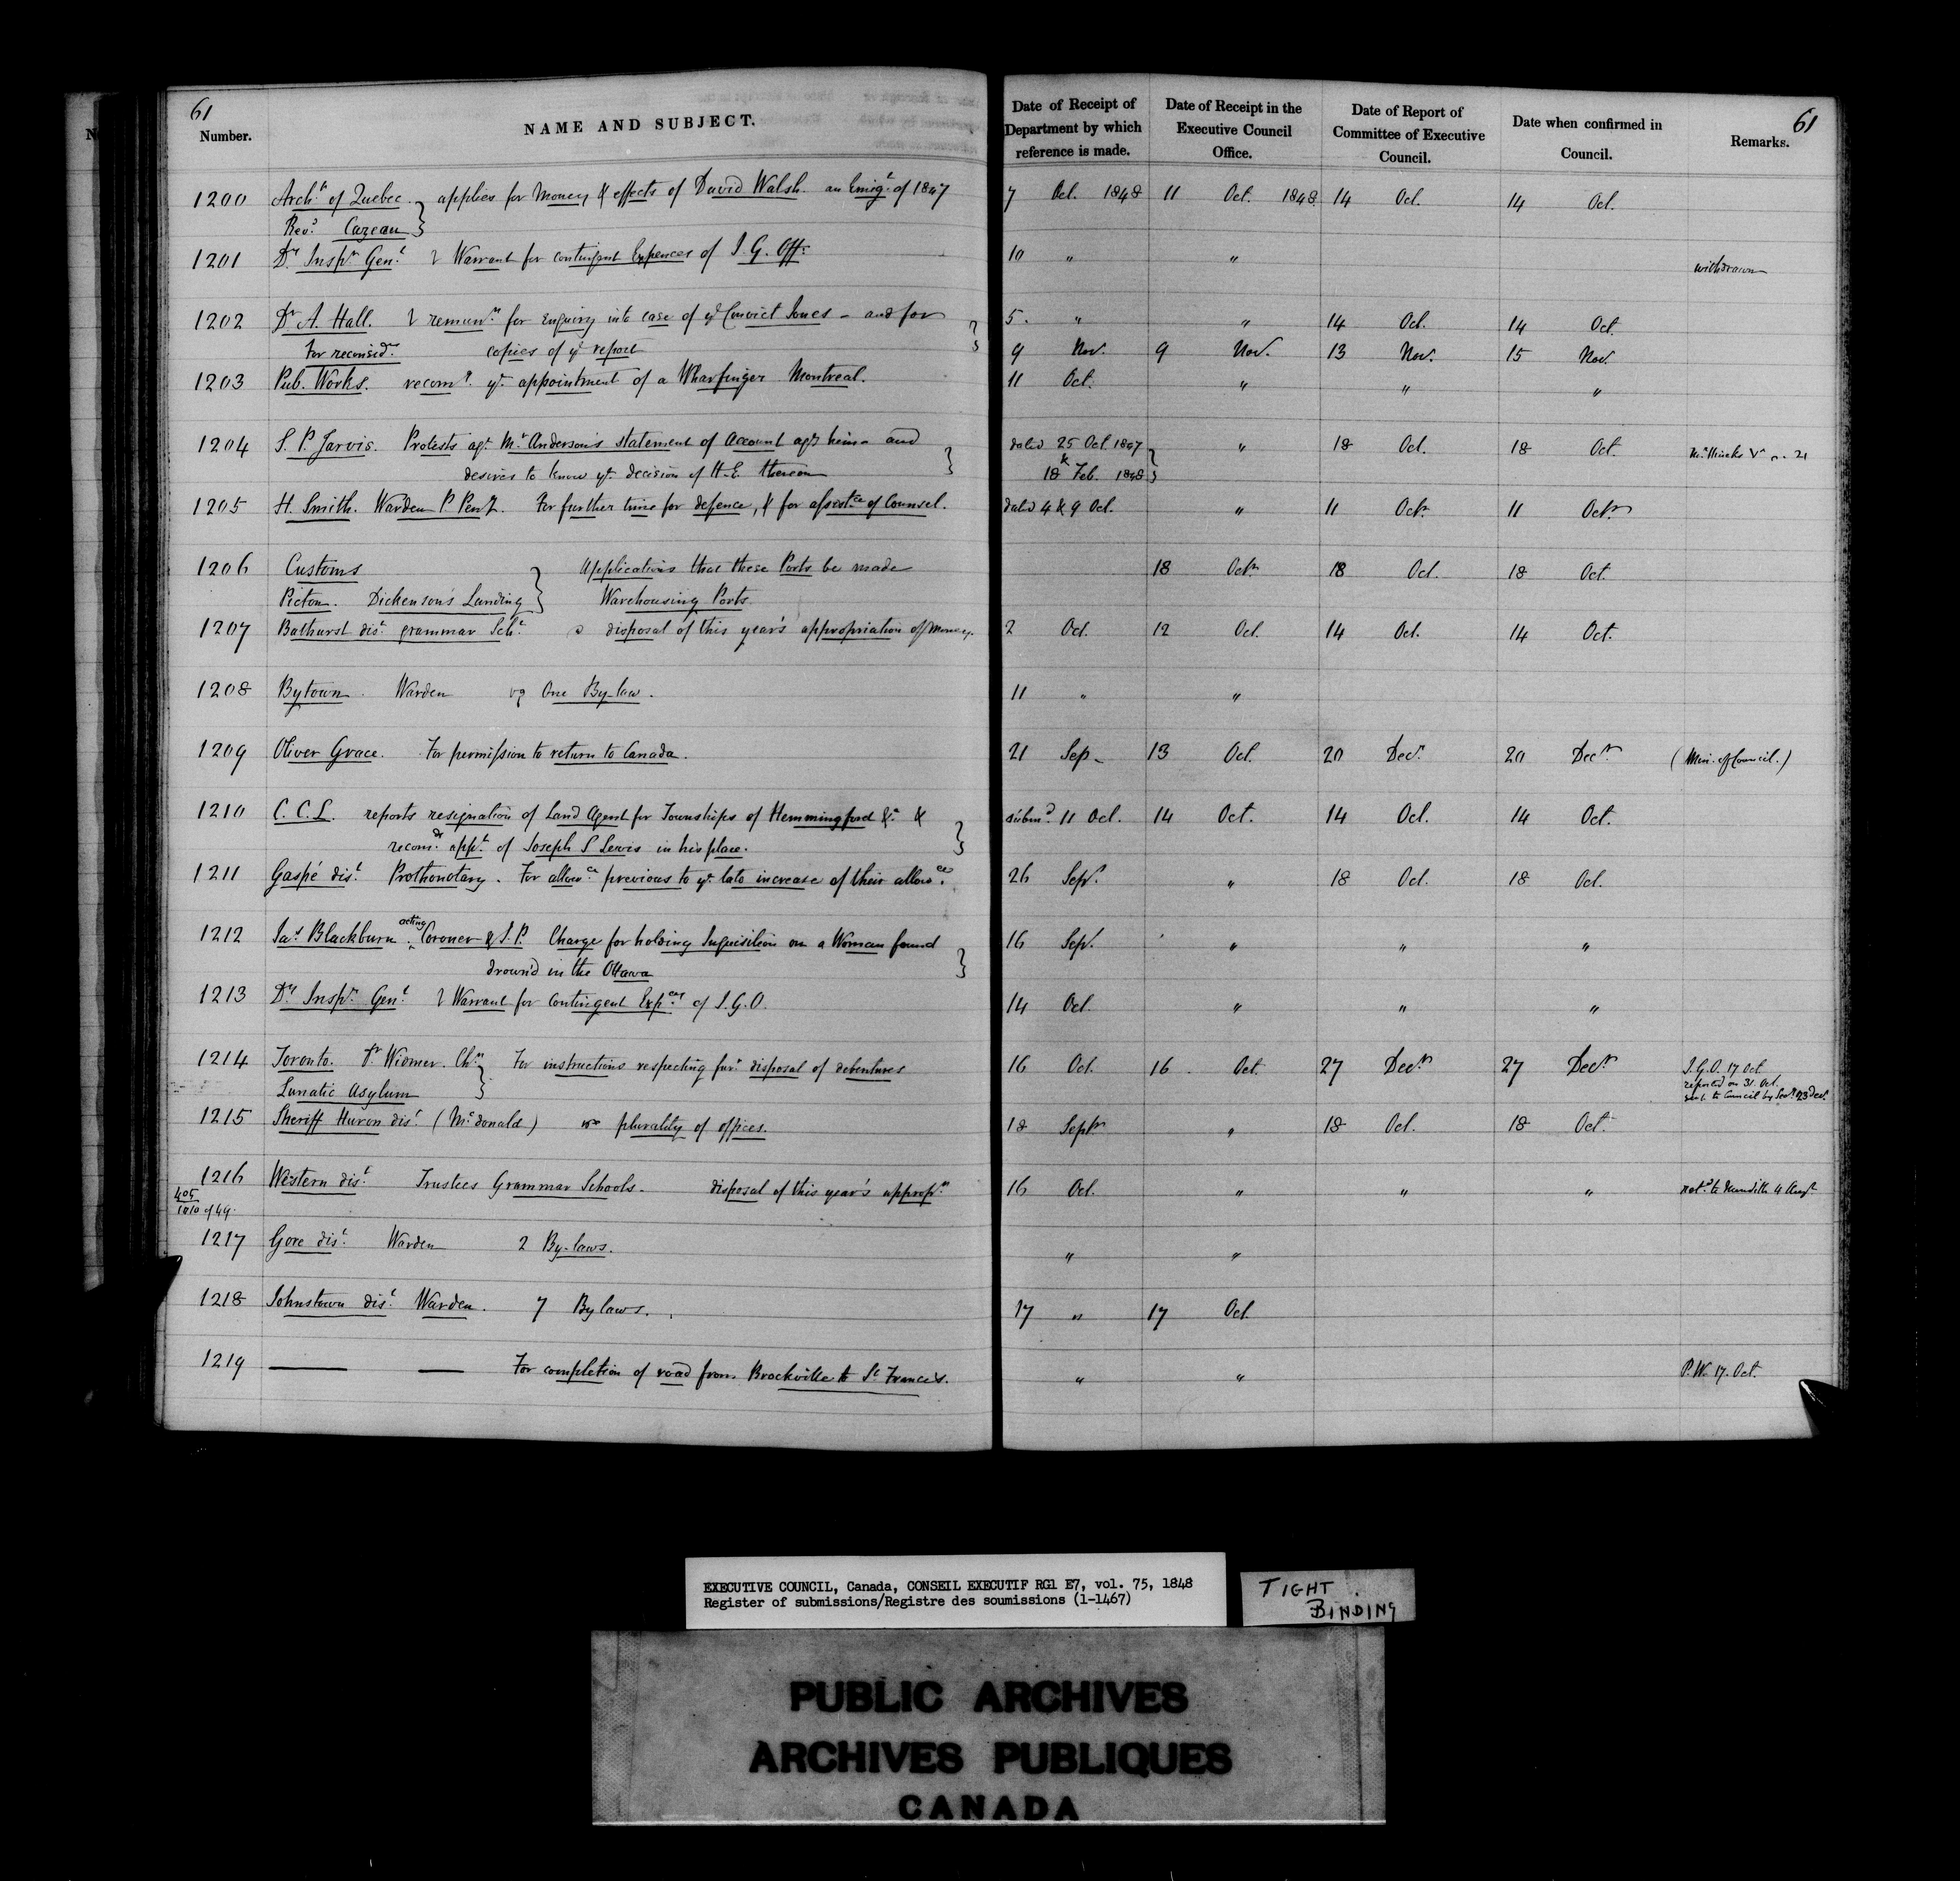 61
61
Number.
NAME AND SUBJECT.
Date of Receipt of Department by which reference is made.
Date of Receipt in the Executive Council Office.
Date of Report of Committee of Executive Council.
Date when confirmed in Council.
Remarks.
1200 Archp. of Quebec. applies for Money & effects of David Walsh. an Emigt. of 1847 7 Oct. 1848 11 Oct. 1848 14 Oct. 14 Oct.
Revd. Cazeau
1201 Dy. Inspr. Genl. Warrant for contingent Expences of I. G. Offe. 10 " " withdrawn
1202 Dr A. Hall. remunn. for Enquiry into case of ye Convict Jones - and for 5. " " 14 Oct. 14 Oct.
For reconsidn. copies of ye report 9 Nov. 9 Nov. 13 Nov. 15 Nov.
1203 Pub. Works. recomg. ye appointment of a Wharfinger Montreal. 11 Oct. " " "
1204 S. P. Jarvis. Protests agt. Mr. Anderson's statement of Account agst him - and dated 25 Oct 1847 " 18 Oct. 18 Oct.
desires to know ye decision of H. E. thereon & 18 Feb. 1848
1205 H. Smith. Warden P. Peny. For further time for defence, & for assistce of Counsel. dated 4 & 9 Oct. " 11 Octr 11 Octr
1206 Customs Applications that these Ports be made 18 Octr 18 Oct. 18 Oct.
Picton. Dickenson's Landing Warehousing Ports
1207 Bathurst dist. grammar Schl. disposal of this year's appropriation of Money. 2 Oct. 12 Oct. 14 Oct. 14 Oct.
1208 Bytown. Warden One By-law. 11 " "
1209 Oliver Grace. For permission to return to Canada. 21 Sep. 13 Oct. 20 Decr. 20 Decr. (Min. of Council.)
1210 C. C. L. reports resignation of Land Agent for Townships of Hemmingford &c. & submd. 11 Oct. 14 Oct. 14 Oct. 14 Oct.
recomds. appt. of Joseph S Lewis in his place.
1211 Gaspé dist. Prothonotary. For allowce. previous to ye late increase of their allowces. 26 Sepr. " 18 Oct. 18 Oct.
1212 Jas. Blackburn, acting Coroner & J. P. Charge for holding Inquisition on a Woman found 16 Sepr. " " "
drown'd in the Ottawa
1213 Dy. Inspr. Genl. Warrant for Contingent Expces. of I. G. O. 14 Oct. " " "
1214 Toronto. Dr Widmer. Chn. For instructions respecting furr. disposal of debentures 16 Oct. 16. Oct. 27 Decr 27 Decr I. G. O. 17 Oct.
Lunatic Asylum reported on 31. Oct.
sent to Council by Secy. 23 Decr.
1215 Sheriff Huron dist. (McDonald) plurality of offices. 18 Septr " 18 Oct. 18 Oct.
1216 Western dist. Trustees Grammar Schools. disposal of this year's appropn. 16 Oct. " " "
405
1010 of 49.
1217 Gore dist. Warden 2 By-laws. " "
1218 Johnstown dist. Warden. 7 By laws. 17 " 17 Oct.
1219 —— —— For completion of road from Brockville to St Francis. " " P. W. 17. Oct.
EXECUTIVE COUNCIL, Canada, CONSEIL EXECUTIF RG1 E7, vol. 75, 1848
Register of submissions/Registre des soumissions (1-1467)
TIGHT
BINDING
PUBLIC ARCHIVES
ARCHIVES PUBLIQUES
CANADA